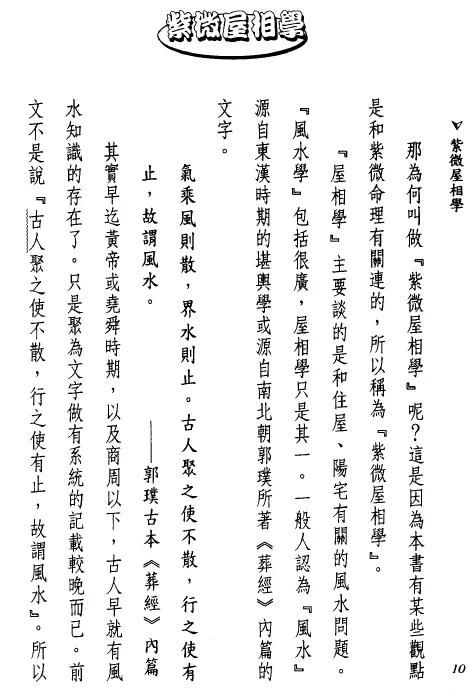 紫微屋相學
▼紫微屋相學
那為何叫做『紫微屋相學』呢？這是因為本書有某些觀點
是和紫微命理有關連的，所以稱為『紫微屋相學』。
『屋相學』主要談的是和住屋、陽宅有關的風水問題。
『風水學』包括很廣，屋相學只是其一。一般人認為『風水』
源自東漢時期的堪輿學或源自南北朝郭璞所著《葬經》內篇的
文字。
氣乘風則散，界水則止。古人聚之使不散，行之使有
止，故謂風水。
——郭璞古本《葬經》內篇
其實早迄黃帝或堯舜時期，以及商周以下，古人早就有風
水知識的存在了。只是聚為文字做有系統的記載較晚而已。前
文不是說『古人聚之使不散，行之使有止，故謂風水』。所以
10